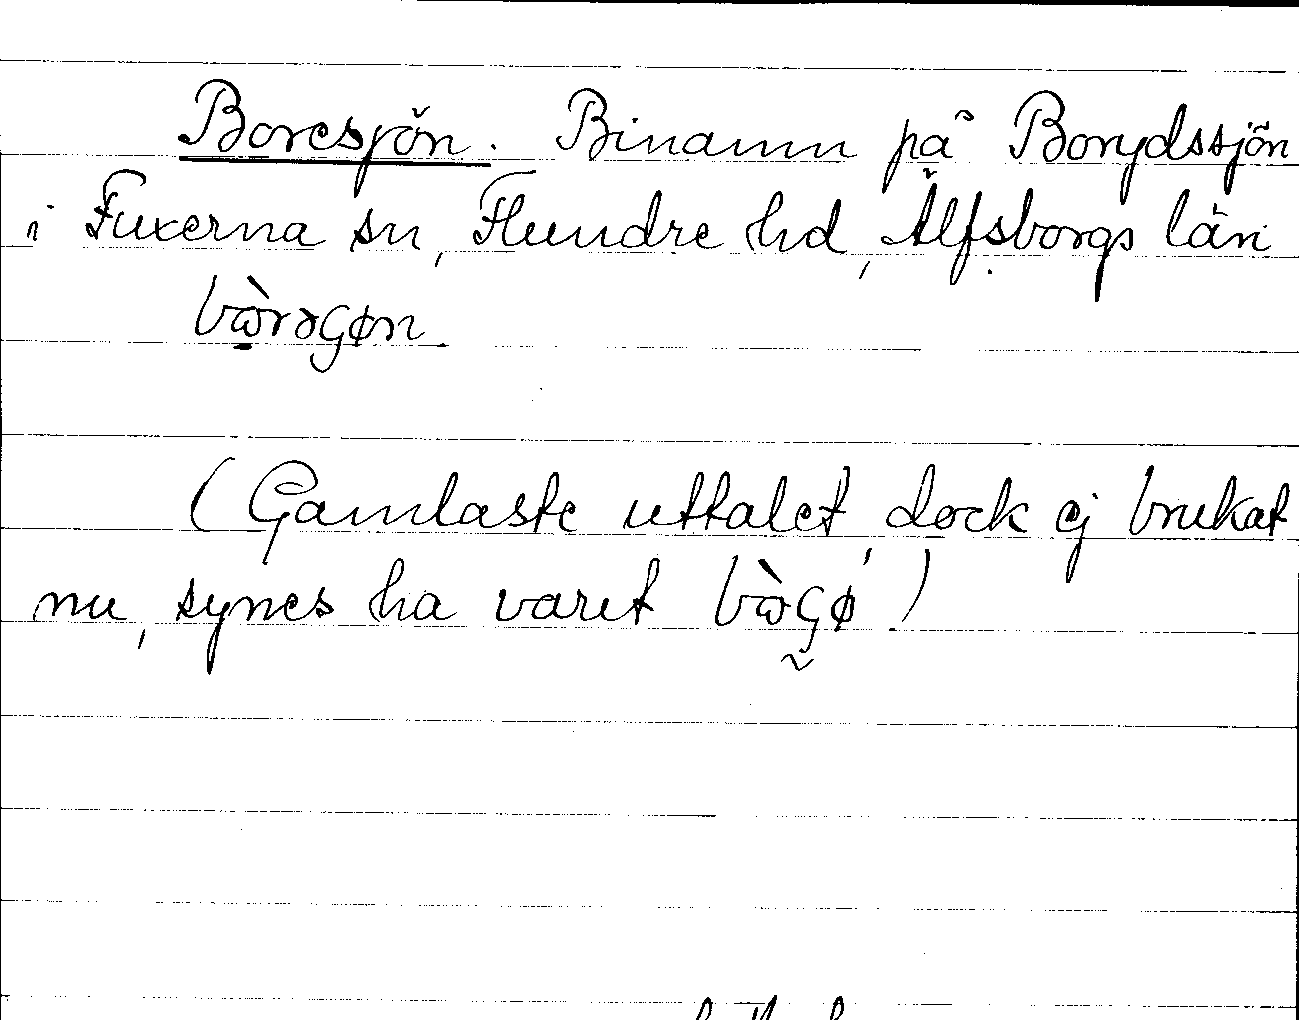 Boresjön. Binamn på Borydssjön
i Fuxerna sn, Flundre hd, Älfsborgs län
bɷ̀rəɢøn.
(Gamlaste uttalet, dock ej brukat
nu, synes ha varit bɷ̀ɢø)